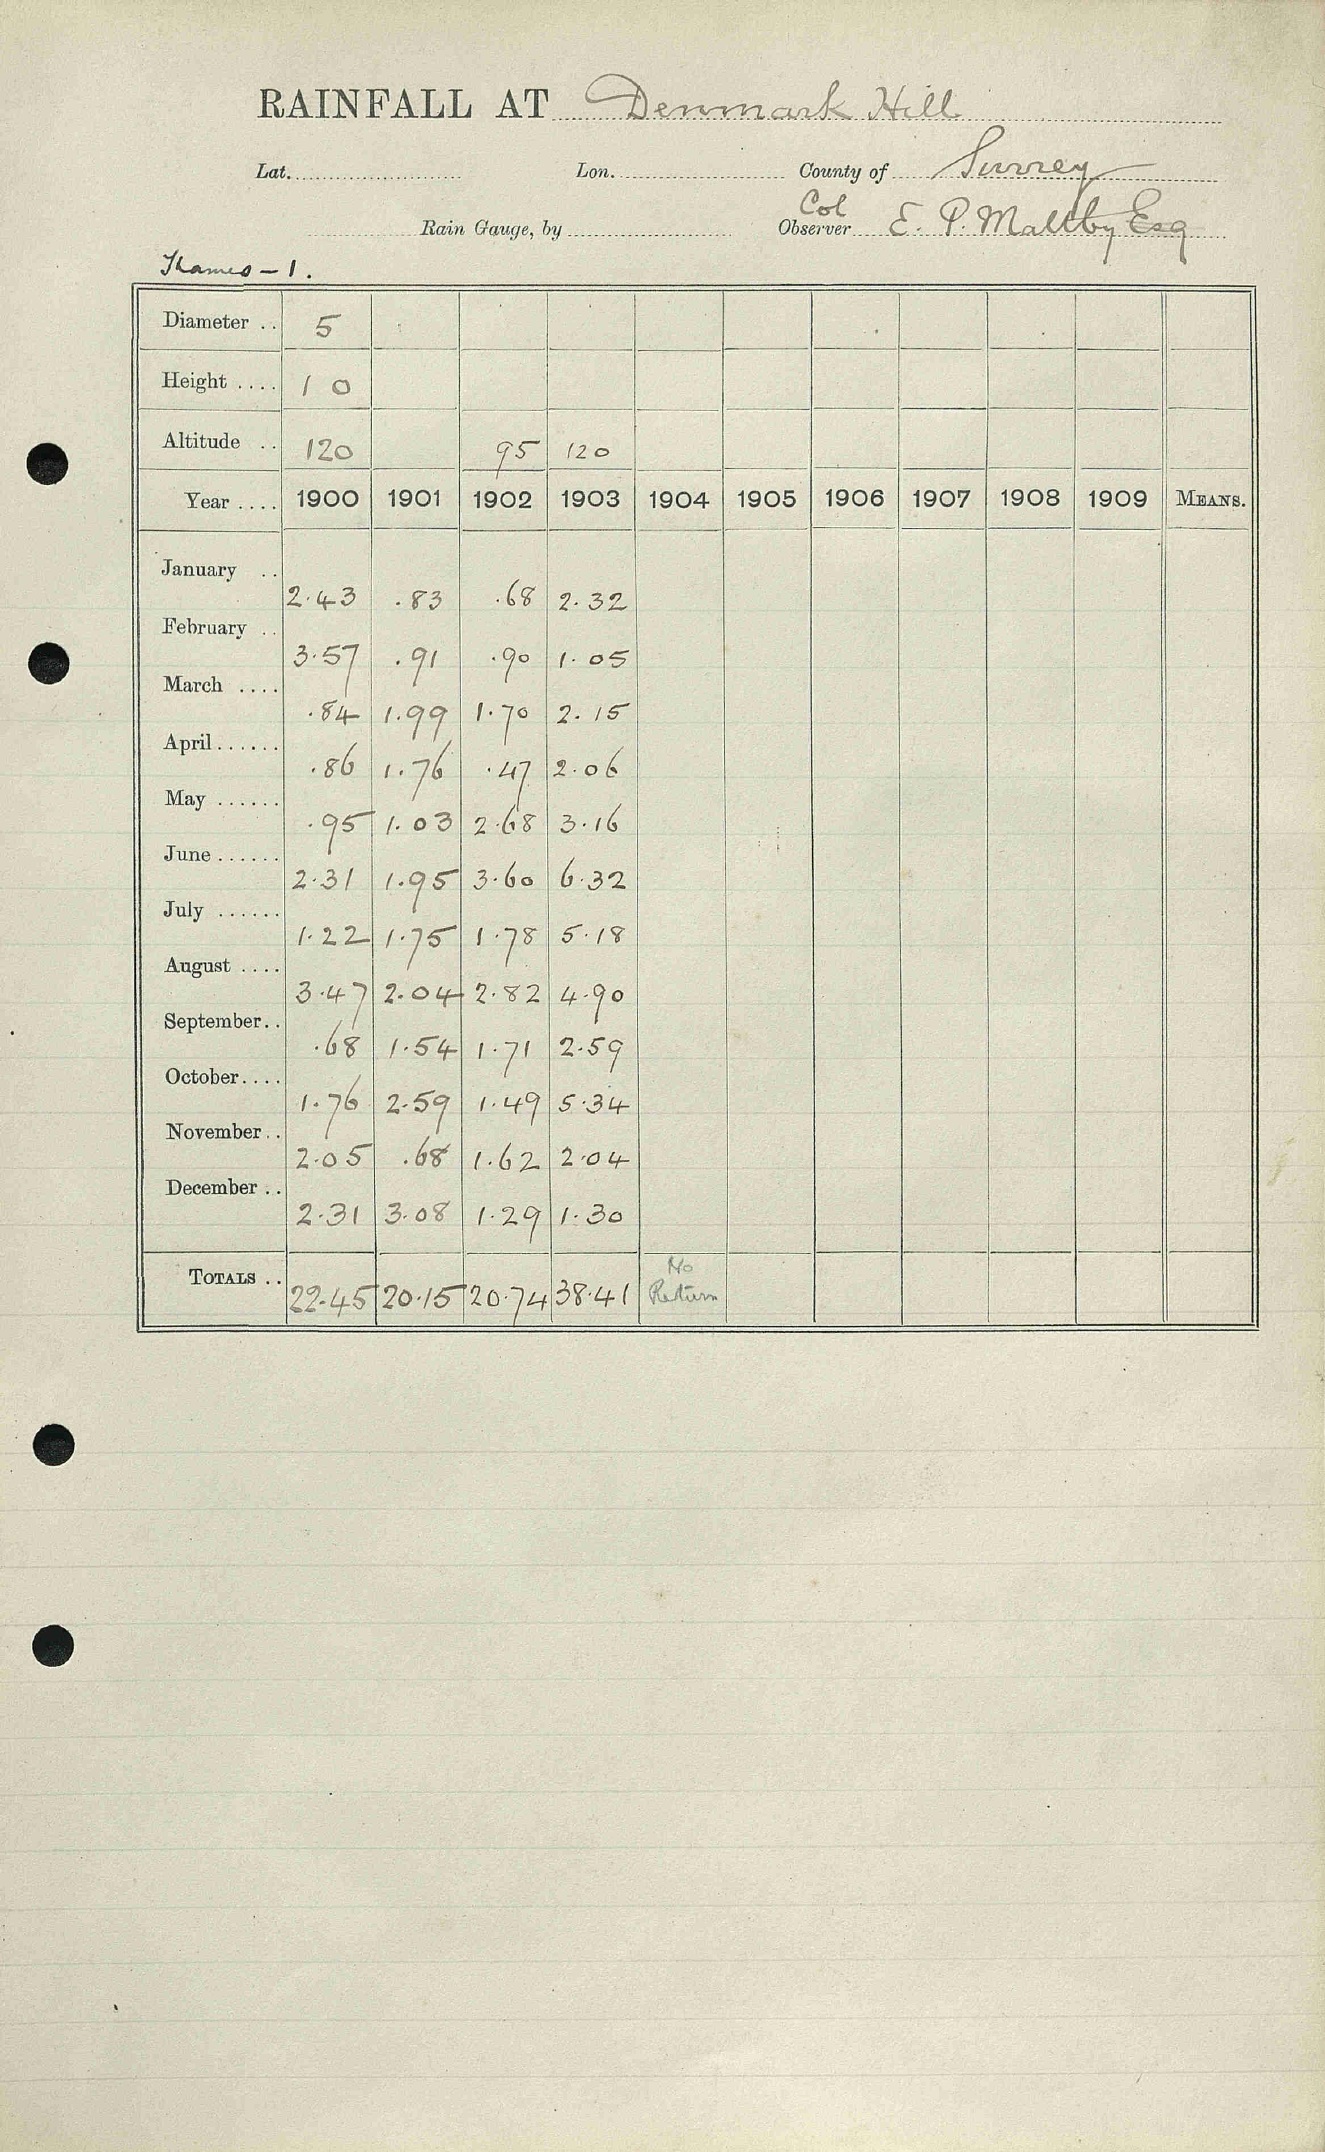 RAINFALL AT Denmark Hill
Lat. Lon. County of Surrey
Col
Rain Gauge, by Observer E. P. Maltby Esq
Thames - 1.
Diameter .. 5
Height .... 1 0
Altitude .. 120 95 120
Year .... 1900 1901 1902 1903 1904 1905 1906 1907 1908 1909 MEANS.
January .. 2.43 .83 .68 2.32
February .. 3.57 .91 .90 1.05
March .... .84 1.99 1.70 2.15
April...... .86 1.76 .47 2.06
May ...... .95 1.03 2.68 3.16
June...... 2.31 1.95 3.60 6.32
July ...... 1.22 1.75 1.78 5.18
August .... 3.47 2.04 2.82 4.90
September.. .68 1.54 1.71 2.59
October.... 1.76 2.59 1.49 5.34
November.. 2.05 .68 1.62 2.04
December .. 2.31 3.08 1.29 1.30
TOTALS .. 22.45 20.15 20.74 38.41 No Return